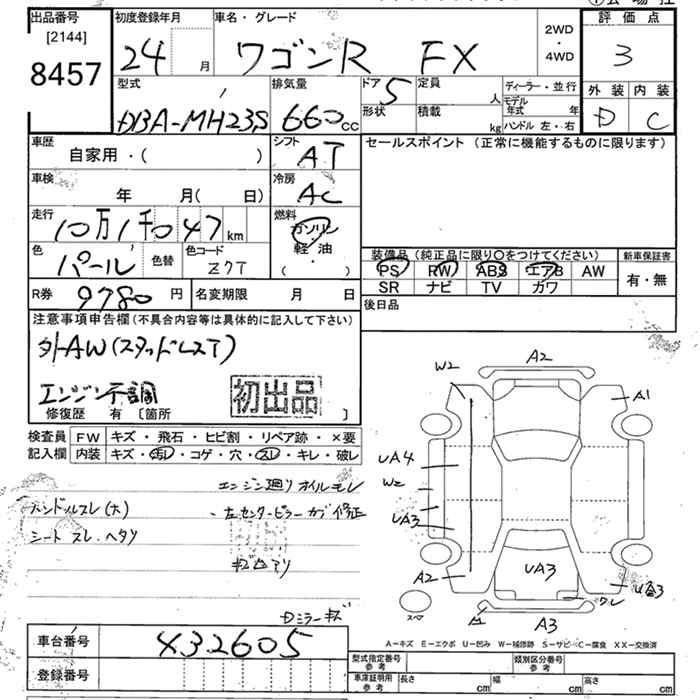 出品番号 初度登録年月 車名・グレード 評価点
[2144] 2WD
8457 24 月 ワゴンR FX ・ 3
4WD
型式 排気量 ドア 定員 ディーラー・並行 外装 内装
5 人 モデル年式 年
DBA-MH23S 660cc 形状 積載 kg ハンドル 左・右 D C
車歴 シフト セールスポイント (正常に機能するものに限ります)
自家用・( ) AT
車検 冷房
年 月( 日) AC
走行 燃料
10万1千047km ガソリン
軽・油
色 色替 色コード 装備品 (純正品に限り○をつけてください) 新車保証書
パール ZCT ( ) PS RW ABS エアB AW 有・無
SR ナビ TV カワ
R券 9780円 名変期限 月 日 後日品
注意事項申告欄(不具合内容等は具体的に記入して下さい)
外AW(スタッドレスT)
エンジン不調 初出品
修復歴 有 〔箇所 〕
検査員 FW キズ・飛石・ヒビ割・リペア跡・×要
記入欄 内装 キズ・汚レ・コゲ・穴・スレ・キレ・破レ
エンジン廻りオイルモレ
ハンドルスレ(大) ・左センターピラーカブ修正
シートスレ、ヘタリ
Dミラーキズ
A2
W2 A1
UA4
W2
UA3
A2 UA3 UA3
クレ
スペア A1 A3
A-キズ E-エクボ U-凹み W-補修跡 S-サビ C-腐食 XX-交換済
車台番号 X32605
登録番号
型式指定番号 参考 類別区分番号 参考
車庫証明用 参考 長さ cm 幅 cm 高さ cm